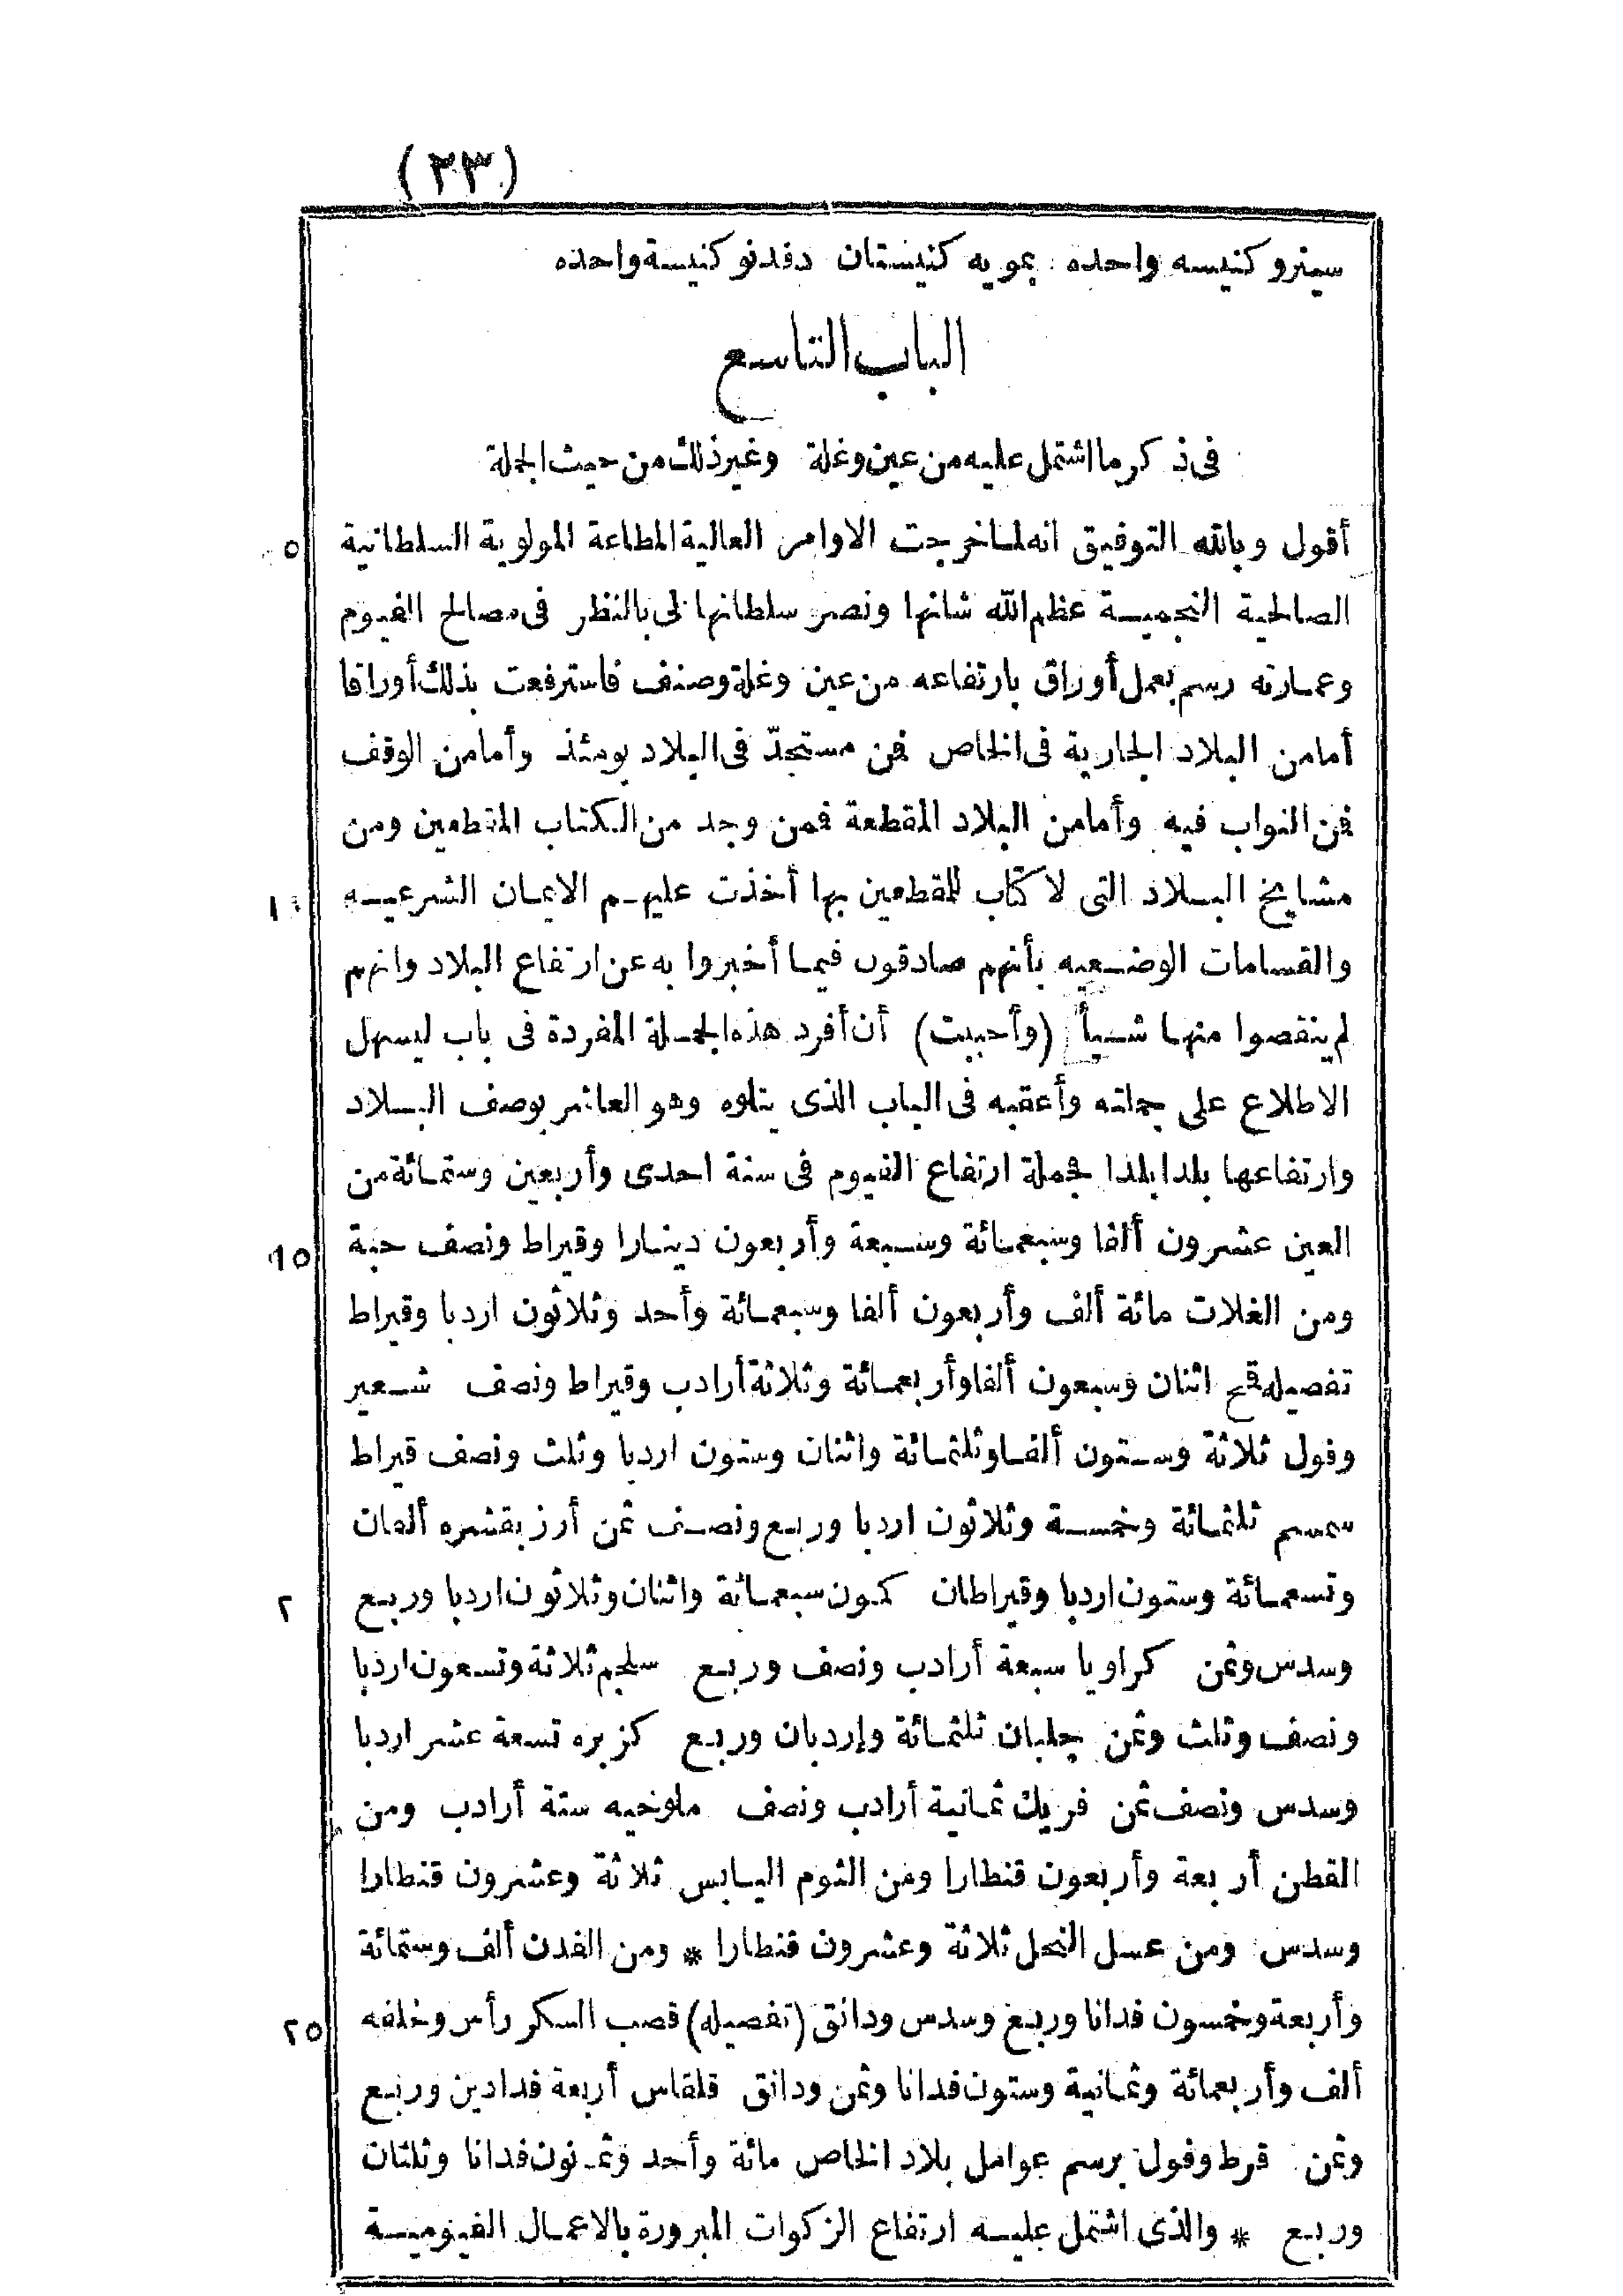 (٢٣)
سينرو كنيسه واحده بمويه كنيستان دفدنو كنيسة واحده
الباب التاسع
فى ذكر ما اشتمل عليه من عين وغلة وغير ذلك من حيث الجملة
أقول وبالله التوفيق انه لما خرجت الاوامر العالية المطاعة المولوية السلطانية
٥
الصالحية النجمية عظم الله شانها ونصر سلطانها لى بالنظر فى مصالح الفيوم
وعمارته رسم بعمل أوراق بارتفاعه من عين وغلة وصنف فاسترفعت بذلك أوراقا
أمامن البلاد الجارية فى الخاص فمن مستجدّ فى البلاد يومئذ وأمامن الوقف
فمن النواب فيه وأمامن البلاد المقطعة فمن وجد من الكتاب المقطعين ومن
مشايخ البلاد التى لا كتاب للمقطعين بها أخذت عليهم الايمان الشرعيه
١٠
والقسامات الوضعيه بأنهم صادقون فيما أخبروا به عن ارتفاع البلاد وانهم
لم ينقصوا منها شيأ (وأحببت) أن أفرد هذه الجملة المفردة فى باب ليسهل
الاطلاع على جملته وأعقبه فى الباب الذى يتلوه وهو العاشر بوصف البلاد
وارتفاعها بلدا بلدا فجملة ارتفاع الفيوم فى سنة احدى وأربعين وستمائة من
العين عشرون ألفا وسبعمائة وسبعة وأربعون دينارا وقيراط ونصف حبة
١٥
ومن الغلات مائة ألف وأربعون ألفا وسبعمائة وأحد وثلاثون اردبا وقيراط
تفصيله قمح اثنان وسبعون ألفا وأربعمائة وثلاثة أرادب وقيراط ونصف شعير
وفول ثلاثة وستون ألفا وثلثمائة واثنان وستون اردبا وثلث ونصف قيراط
سمسم ثلثمائة وخمسة وثلاثون اردبا وربع ونصف ثمن أرز بقشره ألفان
وتسعمائة وستون اردبا وقيراطان كمون سبعمائة واثنان وثلاثون اردبا وربع
٢
وسدس وثمن كراويا سبعة أرادب ونصف وربع سلجم ثلاثة وتسعون اردبا
ونصف وثلث وثمن جلبان ثلثمائة وإردبان وربع كزبره تسعة عشر اردبا
وسدس ونصف ثمن فريك ثمانية أرادب ونصف ملوخيه ستة أرادب ومن
القطن أربعة وأربعون قنطارا ومن الثوم اليابس ثلاثة وعشرون قنطارا
وسدس ومن عسل النحل ثلاثة وعشرون قنطارا * ومن الفدن ألف وستمائة
وأربعة وخمسون فدانا وربع وسدس ودانق (تفصيله) قصب السكر رأس وخلفه
٢٥
ألف وأربعمائة وثمانية وستون فدانا وثمن ودانق قلقاس أربعة فدادين وربع
وثمن قرط وفول برسم عوامل بلاد الخاص مائة وأحد وثمـنون فدانا وثلثان
وربع * والذى اشتمل عليه ارتفاع الزكوات المبرورة بالاعمال الفيومية